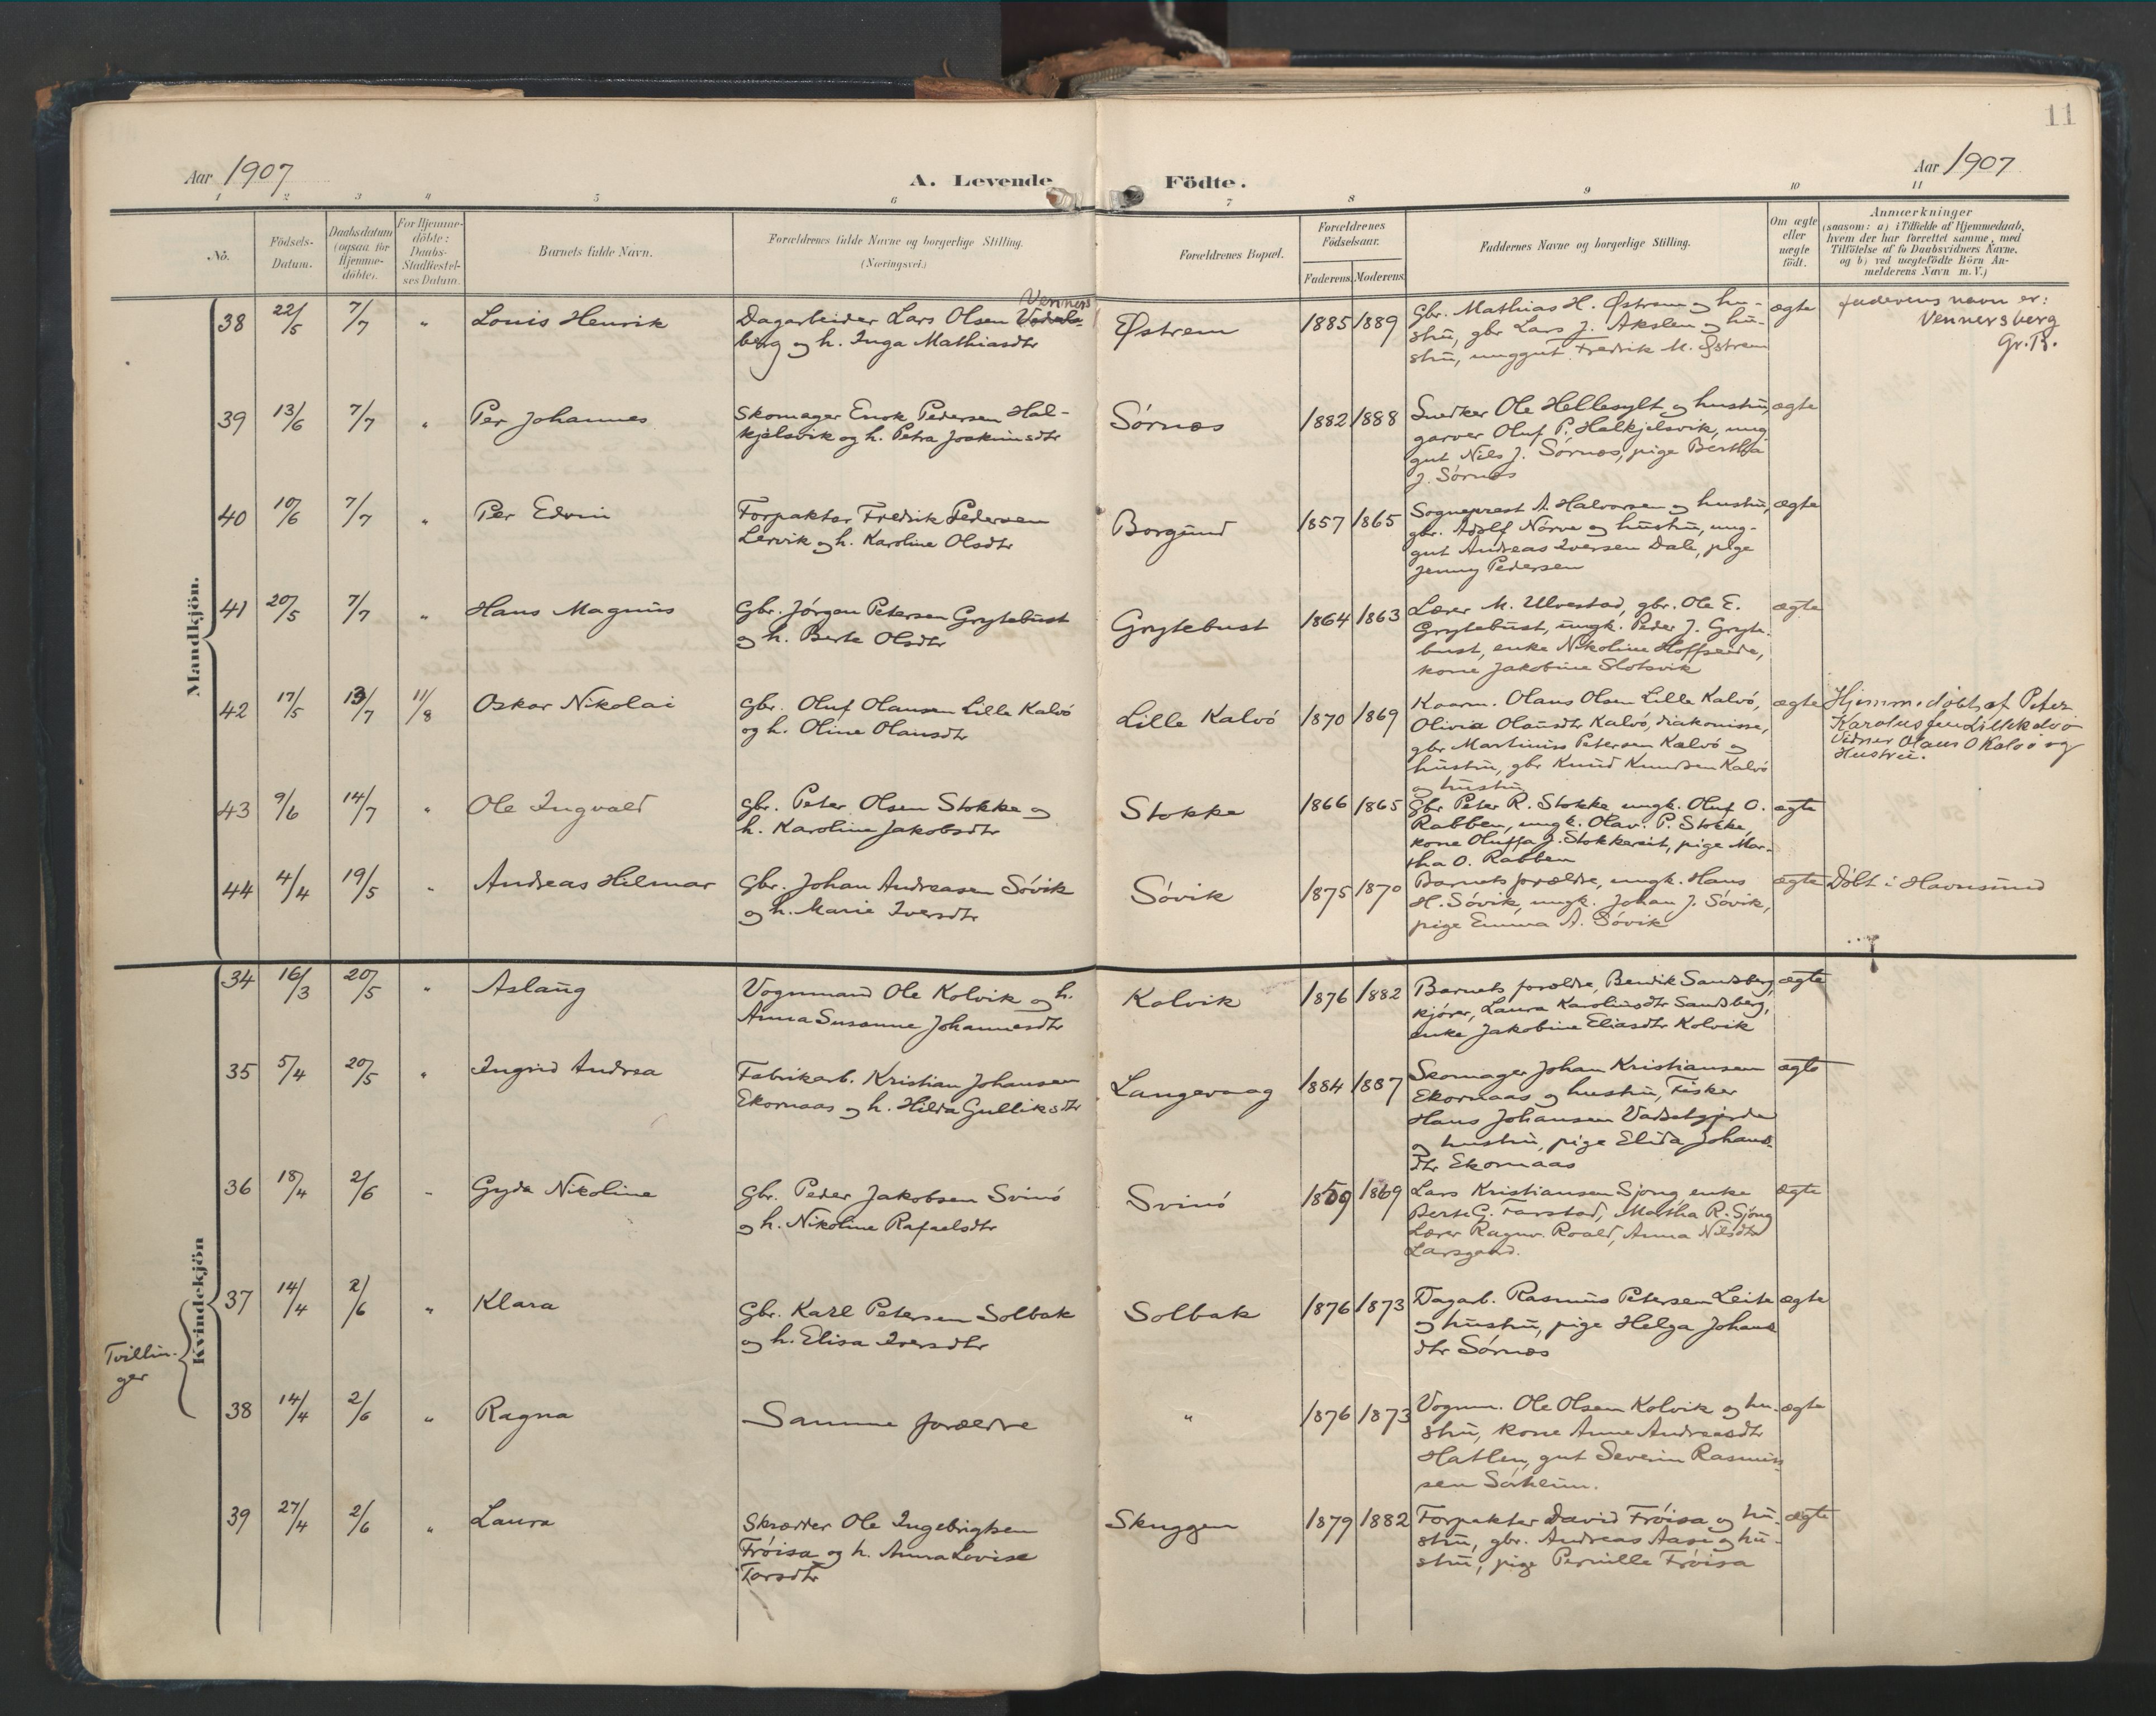 11
Aar 1907
A. Levende Födte.
Aar 1907
1 2 3 4 5 6 7 8 9 10 11
No.
Födsels-
Datum.
Daabsdatum
(ogsaa for
Hjemme-
döbte).
For Hjemme-
döbte:
Daabs-
Stadfæstel-
ses Datum.
Barnets fulde Navn.
Forældrenes fulde Navne og borgerlige Stilling.
(Næringsvei.)
Forældrenes Bopæl.
Forældrenes
Födselsaar.
Faderens. Moderens.
Faddernes Navne og borgerlige Stilling.
Om ægte
eller
uægte
födt.
Anmærkninger
(saasom: a) i Tilfælde af Hjemmedaab,
hvem der har forrettet samme, med
Tilföielse af to Daabsvidners Navne,
og b) ved uægtefödte Börn An-
melderens Navn m. V.)
Mandkjön.
38 22/5 7/7 " Louis Henrik
Dagarbeider Lars Olsen Venners
berg og h. Inga Mathiasdtr
Østrem
1885 1889
Gbr. Mathias H. Østrem og hu-
stru, gbr Lars J. Akslen og hu-
stru, unggut Fredrik M. Østrem
ægte
faderens navn er:
Vennersberg
Gr. R.
39 13/6 7/7 " Per Johannes
Skomager Enok Pedersen Hal-
kjelsvik og h. Petra Joakimsdtr
Sørnes
1882 1888
Snedker Ole Hellesylt og hustru,
garver Oluf P. Halkjelsvik, ung-
gut Nils J. Sørnes, pige Bertha
J. Sørnes
ægte
40 10/6 7/7 " Per Edvin
Forpakter Fredrik Pedersen
Lervik og h. Karoline Olsdtr
Borgund
1857 1865
Sogneprest A. Halvorsen og hustru,
gbr. Adolf Nörve og hustru, ung-
gut Andreas Iversen Dale, pige
Jenny Pedersen
ægte
41 20/5 7/7 " Hans Magnus
Gbr. Jörgen Petersen Grytebust
og h. Berte Olsdtr
Grytebust
1864 1863
Lærer M. Ulvestad, gbr. Ole E.
Grytebust, ungk. Peder J. Gryte-
bust, enke Nikoline Hoffseide,
kone Jakobine Slotsvik
ægte
42 17/5 13/7 11/8 Oskar Nikolai
Gbr. Oluf Olausen Lille Kalvö
og h. Oline Olausdtr
Lille Kalvö
1870 1869
Kaarm. Olaus Olsen Lille Kalvö,
Olivia Olausdtr Kalvö, diakonisse,
gbr Martinus Petersen Kalvö og
hustru, gbr Knud Knudsen Kalvö
og hustru
ægte
Hjemmedöbt af Peter
Karolus Lillekalvö
Vidner Olaus O Kalvö og
Hustru.
43 9/6 14/7 " Ole Ingvald
Gbr. Peter Olsen Stokke og
h. Karoline Jakobsdtr
Stokke
1866 1865
Gbr Peter R. Stokke, ungk. Oluf O.
Rabben, ungk. Olav. P. Stokke,
kone Oluffa J. Stokkereit, pige Mar-
tha O. Rabben
ægte
44 4/4 19/5 " Andreas Hilmar
Gbr. Johan Andreasen Sövik
og h. Marie Iversdtr
Sövik
1875 1870
Barnets forældre, ungk. Hans
H. Sövik, ungk. Johan J. Sövik,
pige Emma A. Sövik
ægte
Döbt i Havnsund
Kvindekjön
34 16/3 20/5 " Aslaug
Vognmand Ole Kolvik og h.
Anna Susanne Johannesdtr
Kolvik
1876 1882
Barnets forældre, Bendik Sandsberg,
kjörer, Laura Karolinusdtr Sandsberg,
enke Jakobine Eliasdtr Kolvik
ægte
35 5/4 20/5 " Ingrid Andrea
Fabrikarb. Kristian Johansen
Ekornaas og h. Hilda Gulliksdtr
Langevaag
1884 1887
Skomager Johan Kristiansen
Ekornaas og hustru, Fisker
Hans Johansen Vadsetgjerde
og hustru, pige Elida Johans-
dtr Ekornaas
ægte
36 18/4 2/6 " Gyda Nikoline
Gbr. Peder Jakobsen Svinö
og h. Nikoline Rafaelsdtr
Svinö
1859 1869
Lars Kristiansen Sjong, enke
Berte G. Farstad, Martha R. Sjong
Lærer Ragnv. Roald, Anna Nilsdtr
Larsgaard.
ægte
Tvillin-
ger
37 14/4 2/6 " Klara
Gbr. Karl Petersen Solbak
og h. Elisa Iversdtr
Solbak
1876 1873
Dagarb. Rasmus Petersen Leite
og hustru, pige Helga Johans
dtr Sørnes
ægte
38 14/4 2/6 " Ragna
Samme forældre
"
1876 1873
Vognm. Ole Olsen Kolvik og hu-
stru, kone Anne Andreasdtr
Hatlen, gut Severin Rasmus-
sen Sörheim.
ægte
39 27/4 2/6 " Laura
Skrædder Ole Ingebrigtsen
Fröisa og h. Anna Lovise
Torsdtr
Skuggen
1879 1882
Forpakter David Fröisa og hu-
stru, gbr. Andreas Aase og hu-
stru, pige Pernille Fröisa
ægte